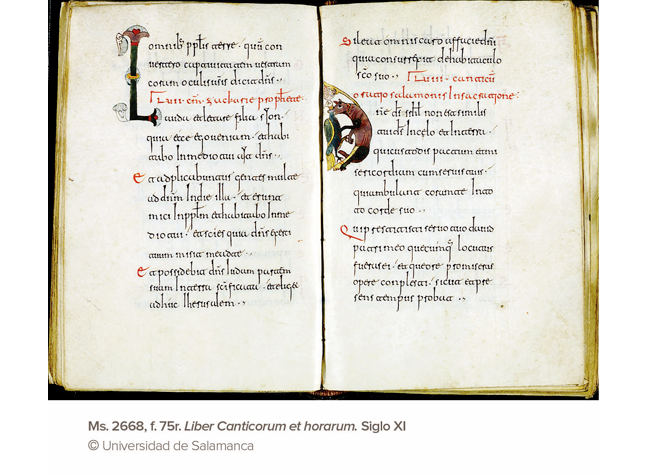 omnib; pplis terre · quum con
uertero captiuitatem uestram
coram oculis uris dicit dns ··
LVII cm zacharie prophete
Lauda et letare filia syon ·
quia ecce ego uenium · et habi
tabo In medio tui ait dns ··
Et adplicabuntur gentes multe
ad dnm In die illa · et erunt
mici In pplm et habitabo In me
dio tui · et scies quia dns exerci
tuum misit me ad te ·
Et possidebit dns Iudam partem
suam In terra scificata · et eliget
adhuc Iherusalem ··
Sileat omnis caro a facie dni
quia consurrexit de habitaculo
sco suo ·· LVIII · canticu
oratio salomonis In sacratione ·
Dne ds isrhl non est similis
tui ds In celo et In terra ·
qui custodis pactum et mi
sericordiam cum seruis tuis ·
qui ambulant coram te In to
to corde suo ··
Qui prestitisti seruo tuo dauid
patri meo quecumq; locutus
fueras ei · et que ore promiseras
opere conplesti · sicut et pre
sens tempus probat ··
Ms. 2668, f. 75r. Liber Canticorum et horarum. Siglo XI
© Universidad de Salamanca